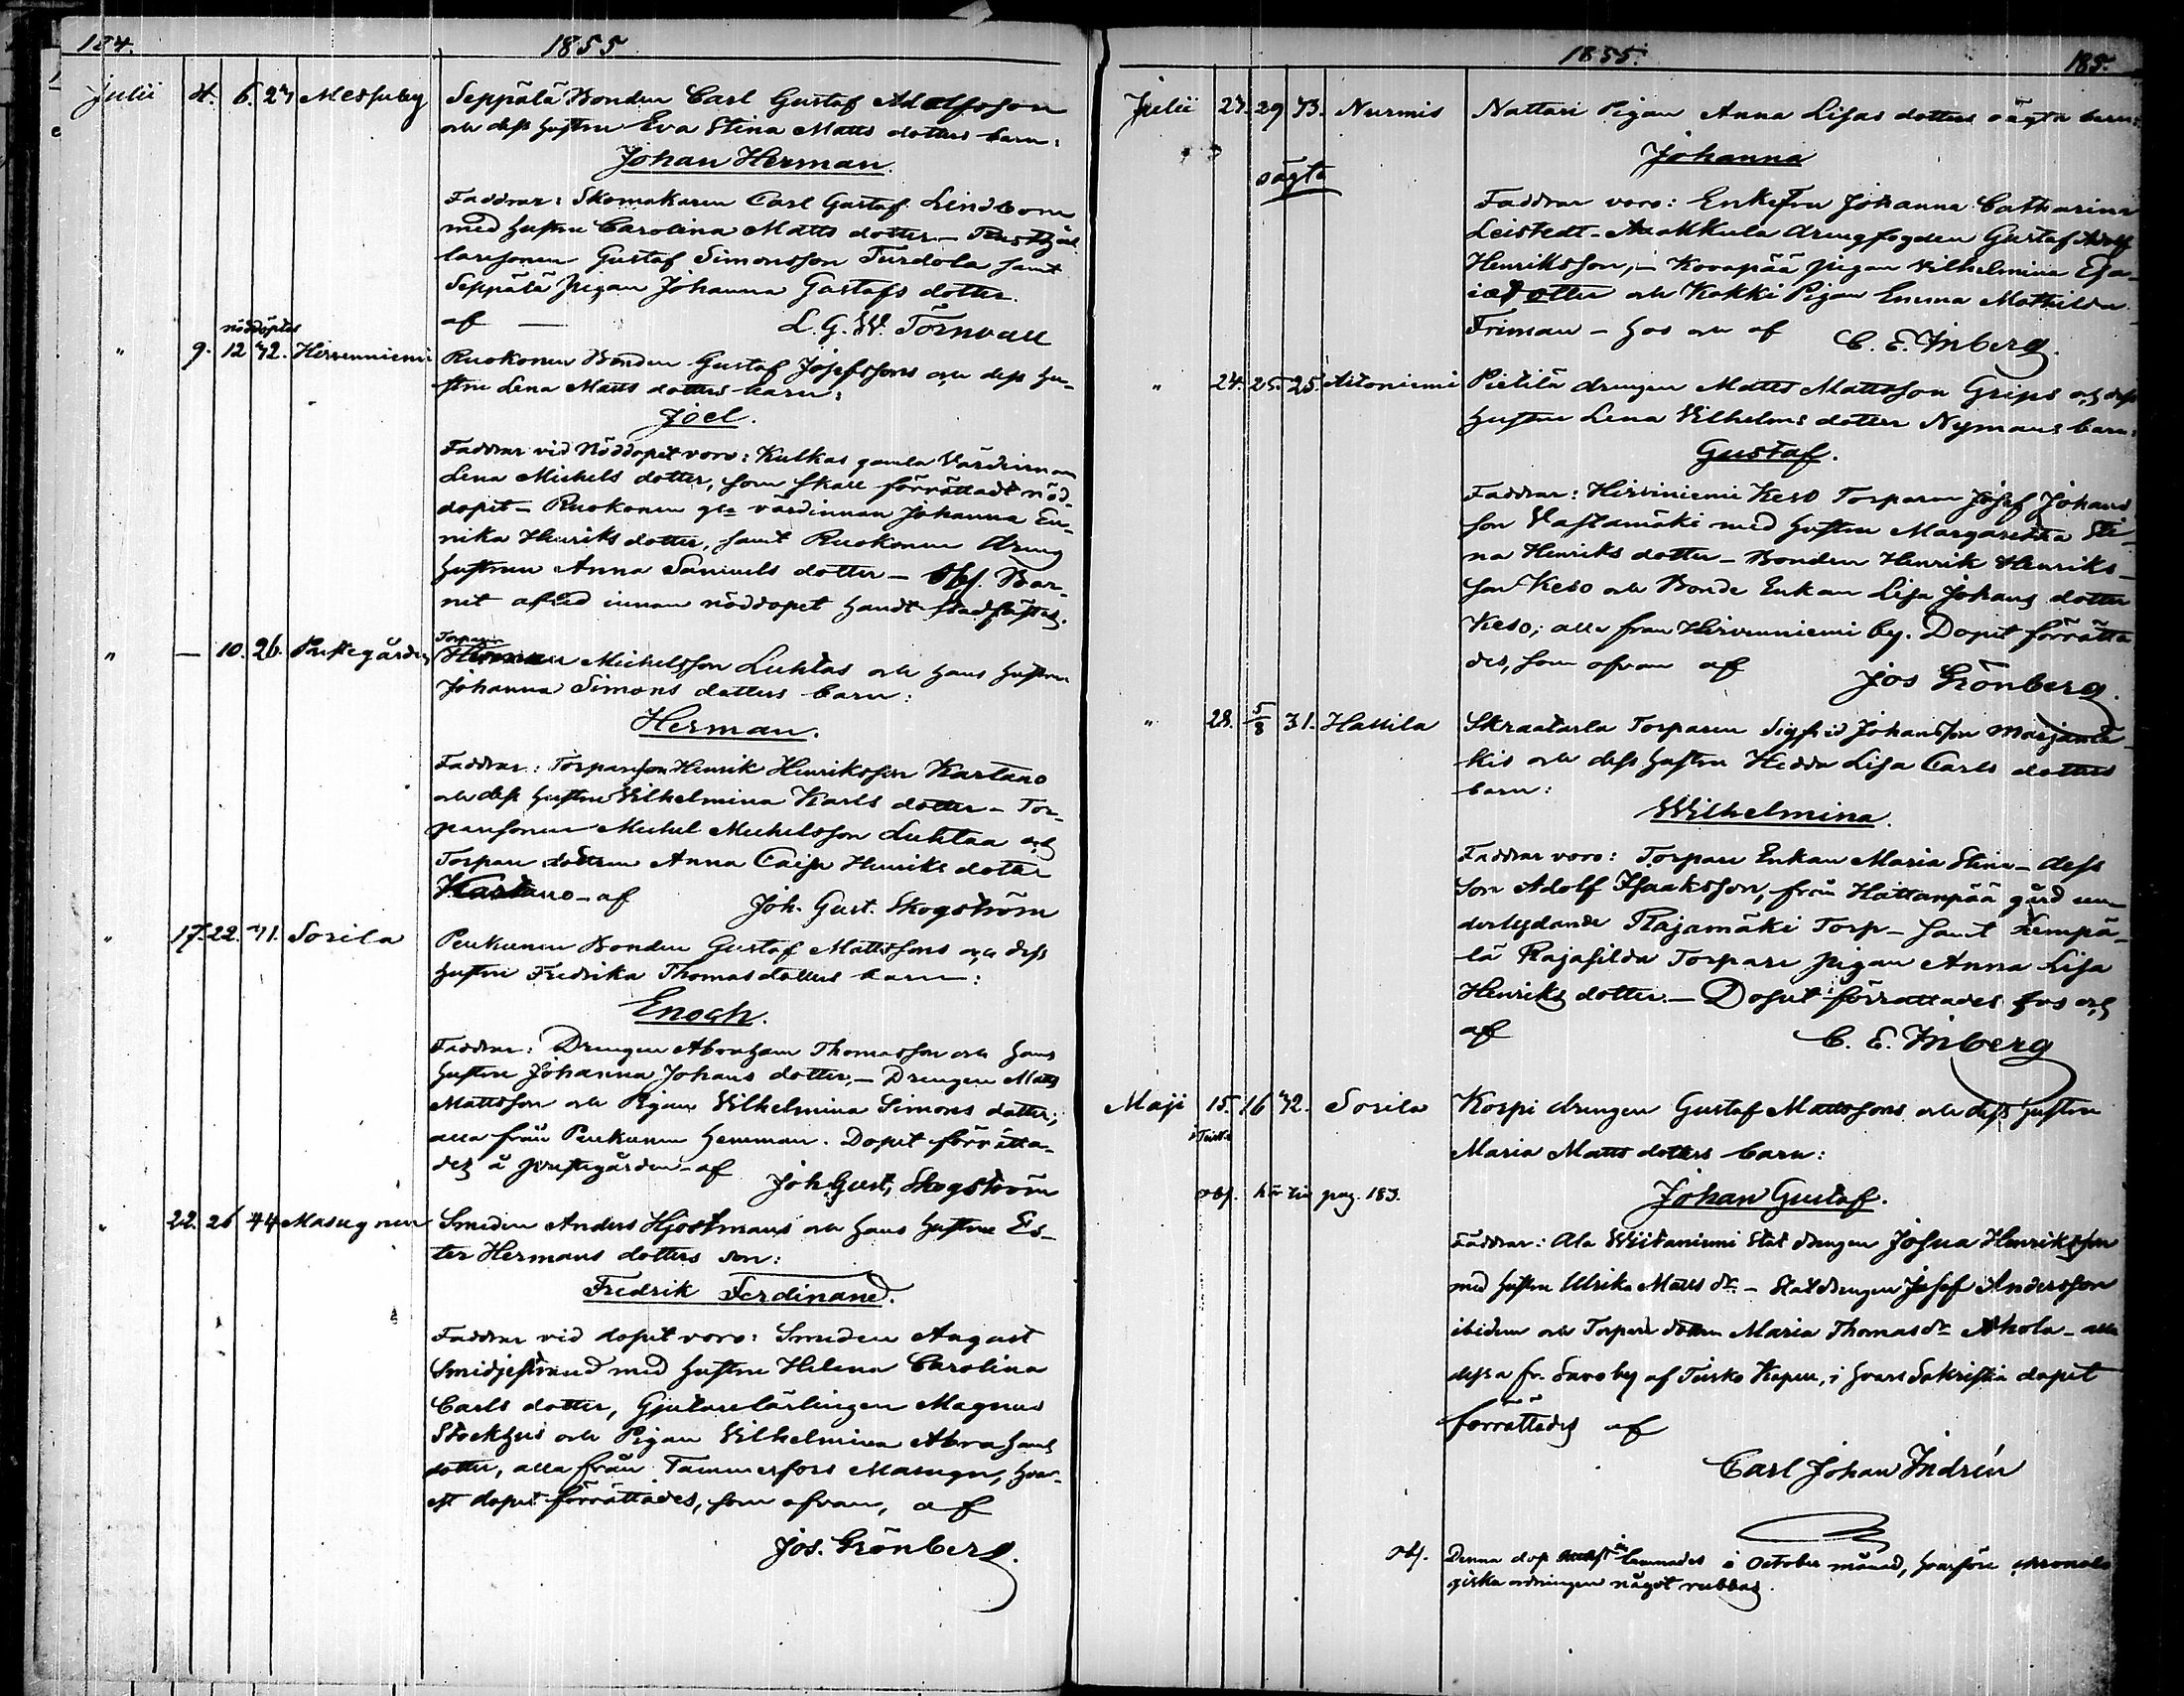 184. 1855
Julii 4. 6. 27 Messuby Seppälä Bonden Carl Gustaf Adolfsson
och dess hustru Eva Stina Matts dotters barn:
Johan Herman.
Faddrar: Skomakaren Carl Gustaf Lindbom
med hustru Carolina Matts dotter –
laresonen Gustaf Simonsson Turdola samt
Seppälä Pigan Johanna Gustafs dotter.
af — L. G. W. Törnvall
nöddöptes
" 9. 12 42. Hirvenniemi Ruokonen Bonden Gustaf Josefssons och dess hu-
stru Lena Matts dotters barn:
Joel.
Faddrar vid Nöddopet voro: Kulkas gamla Värdinnan
Lena Michels dotter, som skall förrättadt nöd-
dopet – Ruokonen gla värdinnan Johanna En-
nika Henriks dotter, samt Ruokonen dreng
hustrun Anna Samuels dotter – Obs. Bar-
net afled innan nöddopet handt stadfästas.
Torparen
" — 10. 26. Prestegården Herman Michelsson Luhtas och hans hustru
Johanna Simons dotters barn:
Herman.
Faddrar: Torparesonen Henrik Henriksson Kartano
och dess hustru Vilhelmina Karls dotter – Tor-
paresonen Michel Michelsson Luhtaa och
Torpare dottren Anna Caisa Henriks dotter
Kartano – af Joh. Gust. Skogström
" 17. 22. 41. Sorila Penkunen Bonden Gustaf Mattssons och dess
hustru Fredrika Thomas dotters barn:
Enoch.
Faddrar: Drengen Abraham Thomasson och hans
hustru Johanna Johans dotter, – Drengen Matts
Mattsson och Pigan Vilhelmina Simons dotter;
alla från Penkunen hemman. Dopet förrätta-
des å prestegården – af Joh. Gust. Skogström
" 22. 26 44 Masugnen Smeden Anders Hjortmans och hans hustru Es-
ter Hermans dotters son:
Fredrik Ferdinand.
Faddrar vid dopet voro: Smeden August
Smidjestrand med hustru Helena Carolina
Carls dotter, Gjutarelärlingen Magnus
Stockhus och Pigan Vilhelmina Abrahams
dotter, alla från Tammerfors Masugn, hvar-
est dopet förrättades, som ofvan, af
Jos. Grönberg.
1855. 185.
Julii 27. 29 43. Nurmis Nattari Pigan Anna Lisas dotters oägta barn:
Johanna
oägta
Faddrar voro: Enkefru Johanna Catharina
Leistedt – Drengfogden Gustaf Adolf
Henriksson, – Kovapää pigan Vilhelmina Esa-
iæ dotter och Kokki Pigan Emma Mathilda
Friman – hos och af C. E. Inberg.
" 24. 25. 25. Aitoniemi Pietilä drengen Matts Mattsson Grips och dess
hustru Lena Vilhelms dotter Nymans barn:
Gustaf.
Faddrar: Hirviniemi Keso Torparen Josef Johans
son Vastamäki med hustru Margaretha Sti-
na Henriks dotter – Bonden Henrik Henriks-
son Keso och Bonde Enkan Lisa Johans dotter
Keso; alla från Hirvenniemi by. Dopet förrätta
des, som ofvan af Jos Grönberg.
" 28. 5/8 31. Hattila Skraatarla Torparen Sigfrid Johansson Marjamä-
kis och dess hustru Hedda Lisa Carls dotters
barn:
Wilhelmina.
Faddrar voro: Torpare Enkan Maria Stina – dess
Son Adolf Isaaksson, från Hattanpää gård un-
derlydande Rajamäki Torp – samt Lempä-
lä Rajasilda Torpare pigan Anna Lisa
Henriks dotter. – Dopet förrättades hos och
af C. E. Inberg
Maji 15. 16 42. Sorila Korpi drengen Gustaf Mattssons och dess hustru
i Teisko
Maria Matts dotters barn:
obs. hör till pag. 183. Johan Gustaf.
Faddrar: Ala Wiitaniemi Stat drengen Josua Henriksson
med hustru Ulrika Matts dr. – Statdrengen Josef Andersson
ibidem och Torpare dottren Maria Thomas dr Ahola – alla
dessa fr. Savo by af Teisko Kapell, i hvars Sakristia dopet
förrättades af
Carl Johan Indrén
Obs. Denna dop lemnades i October månad, hvarföre chronolo
giska ordningen något rubbas.